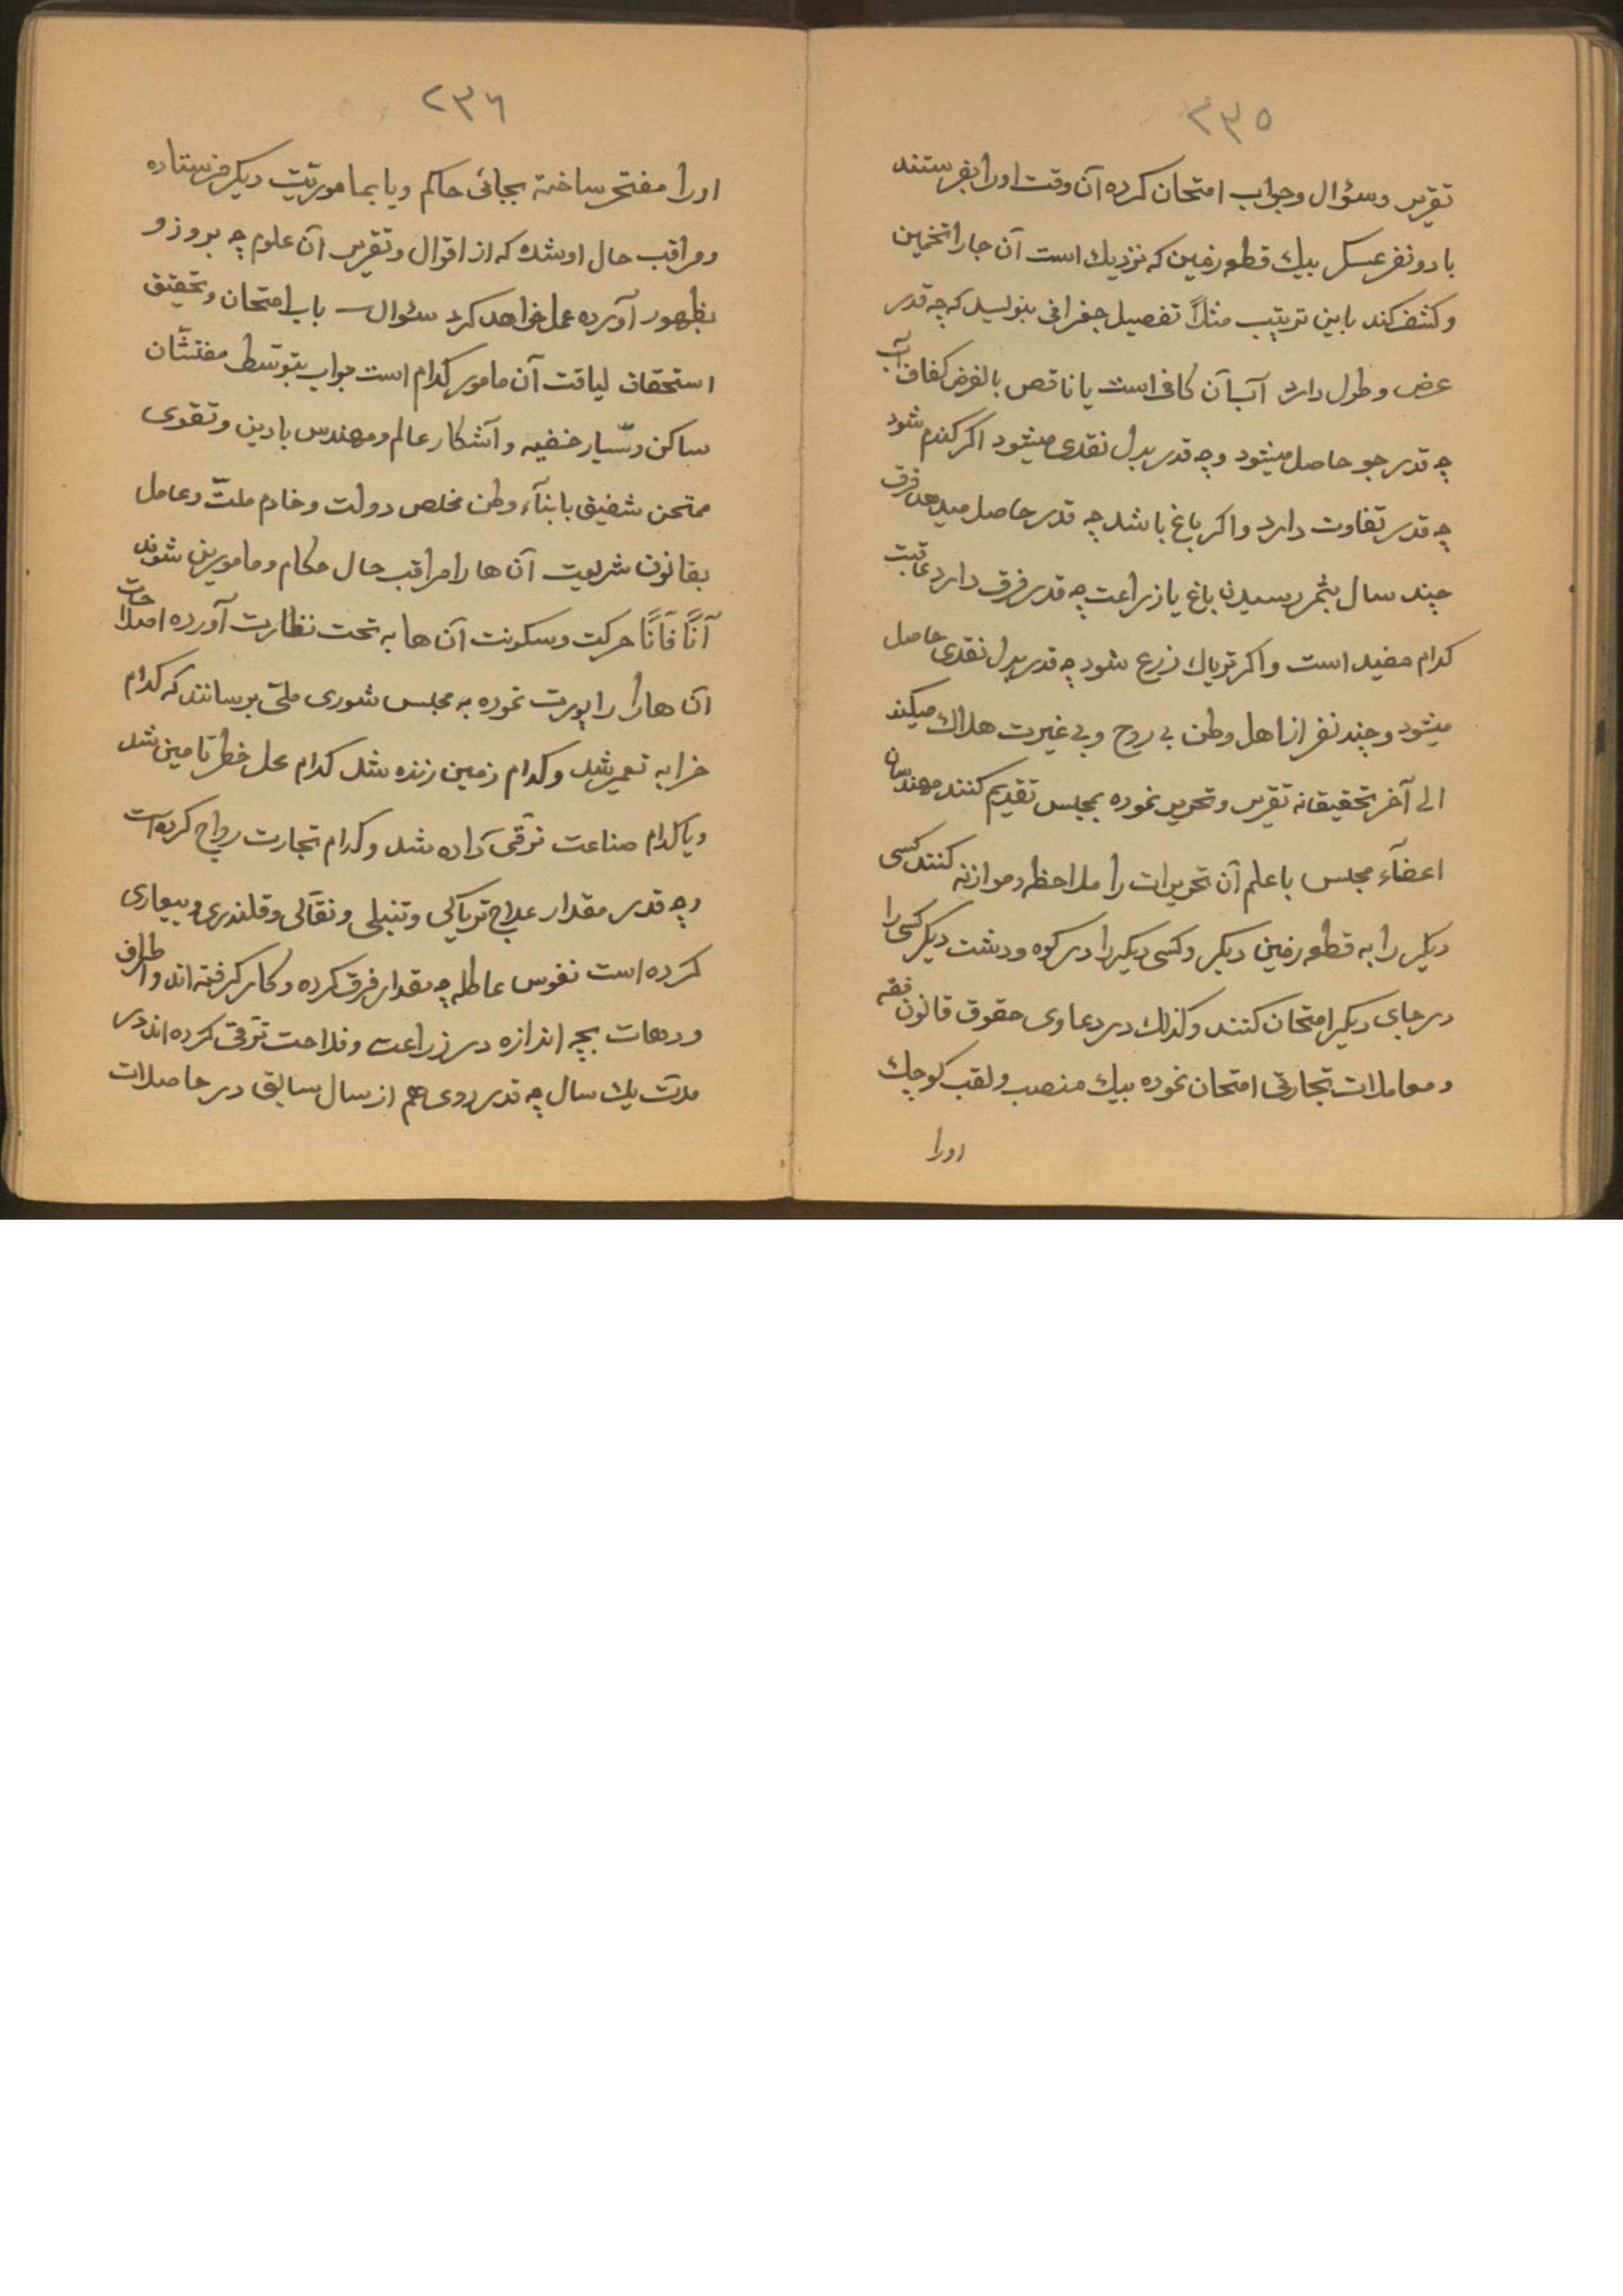 ۲۳۵
تقریر و سؤال و جواب امتحان کرده آن وقت او را بفرستند
با دو نفر عسکر بیك قطعه زمین که نزدیك است آن جا را تخمین
و کشف کند باین ترتیب مثلاً تفصیل جغرافی بنویسد که چه قدر
عرض و طول دارد آب آن کافی است یا ناقص بالفرض کفاف آب
چه قدر جو حاصل میشود و چه قدر بدل نقدی میشود اکر کندم شود
چه قدر تفاوت دارد و اکر باغ باشد چه قدر حاصل میدهد فرق
چند سال بثمر رسیدن باغ یا زراعت چه قدر فرق دارد عاقبت
کدام مفید است و اکر تریاك زرع شود چه قدر بدل نقدی حاصل
میشود و چند نفر از اهل وطن بی روح و بی غیرت هلاك میکند
الی آخر تحقیقانه تقریر و تحریر نموده بمجلس تقدیم کنند مهندسان
اعضآء مجلس با علم آن تحریرات را ملاحظه و موازنه کنند کسی
دیکر را به قطعه زمین دیکر و کسی دیکر را در کوه و دشت دیکر کسی را
در جای دیکر امتحان کنند و کذلك در دعاوی حقوق قانون فقه
و معاملات تجارتی امتحان نموده بیك منصب و لقب کوچك
او را
۲۳٦
او را مفتخر ساخته بجائی حاکم و یا بماموریّت دیکر فرستاده
و مراقب حال او شده که از اقوال و تقریر آن علوم چه بروز و
بظهور آورده عمل خواهد کرد سئوال باب امتحان و تحقیق
استحقاق لیاقت آن مامور کدام است جواب بتوسّط مفتشّان
ساکن و سیّار خفیه و آشکار عالم و مهندس با دین و تقوی
ممتحن شفیق با بنآء وطن مخلص دولت و خادم ملّت و عامل
بقانون شریعت آن ها را مراقب حال حکام و مامورین شوند
آنًا فآنًا حرکت و سکونت آن ها به تحت نظارت آورده اصلاحات
آن ها را راپورت نموده به مجلس شوری ملّی برسانند که کدام
خرابه تعمیر شد و کدام زمین زنده شد کدام محل خطر تامین شد
و یا کدام صناعت ترقی داده شد و کدام تجارت رواج کرده است
و چه قدر مقدار علاج تریاکی و تنبلی و نقّالی و قلندری و بیعاری
کرده است نفوس عاطله چه مقدار فرق کرده و کار کرفته اند و اطراف
و دهات بچه اندازه در زراعت و فلاحت ترقّی کرده اند در
مدّت یك سال چه قدر روی هم از سال سابق در حاصلات